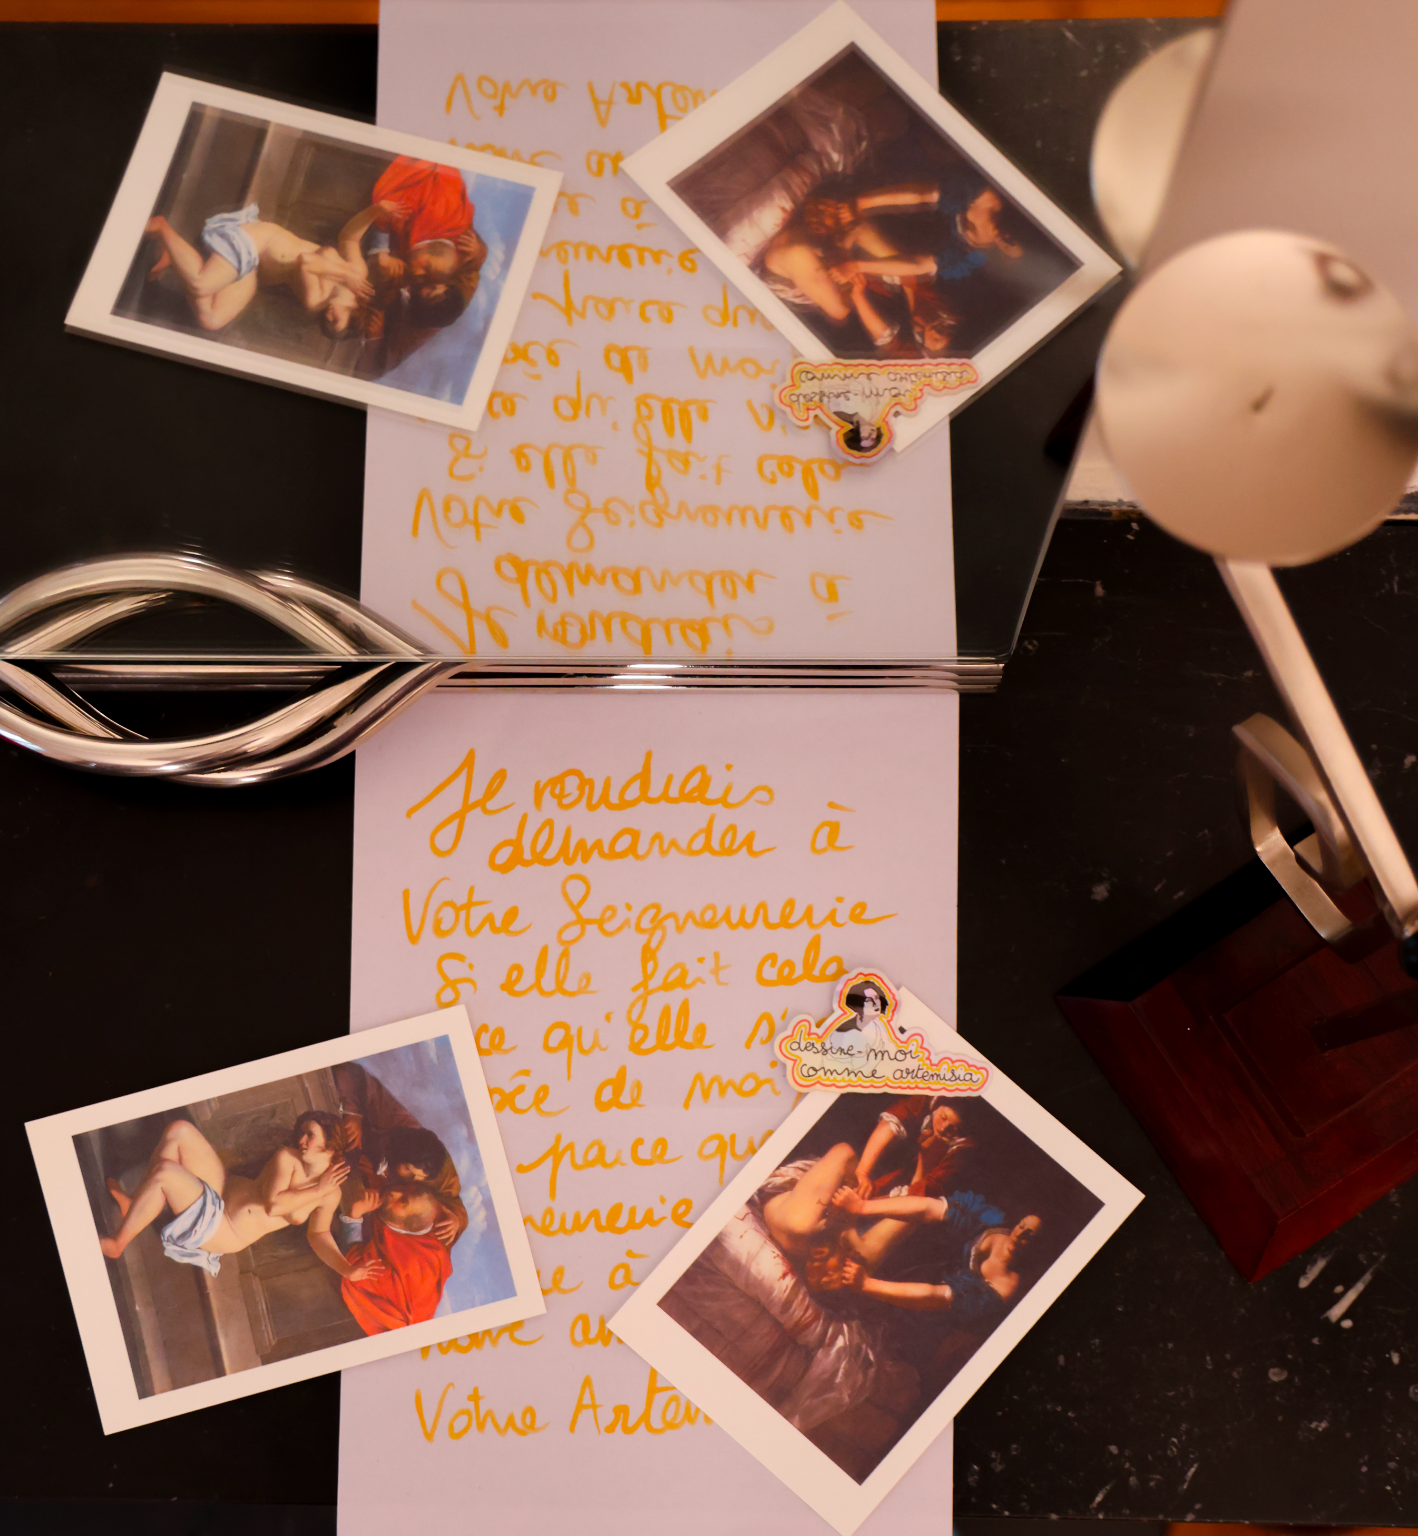 Je voudrais
demander à
Votre Seigneurerie
Si elle fait cela
ce qu'elle
de moi
parce que
à
Votre
dessine-moi
comme artemisia